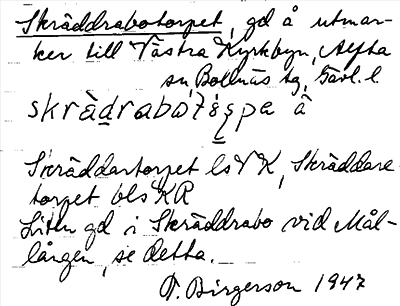 Skräddrabotorpet, gd å utmar-
ker till Västra Kyrkbyn, Alfta
sn, Bollnäs tg, Gävl. l.
å
Skräddartorpet ls V K, Skräddare-
torpet bls KR
Liten gd i Skräddrabo vid Mål-
lången, se detta.
Birgerson 1947